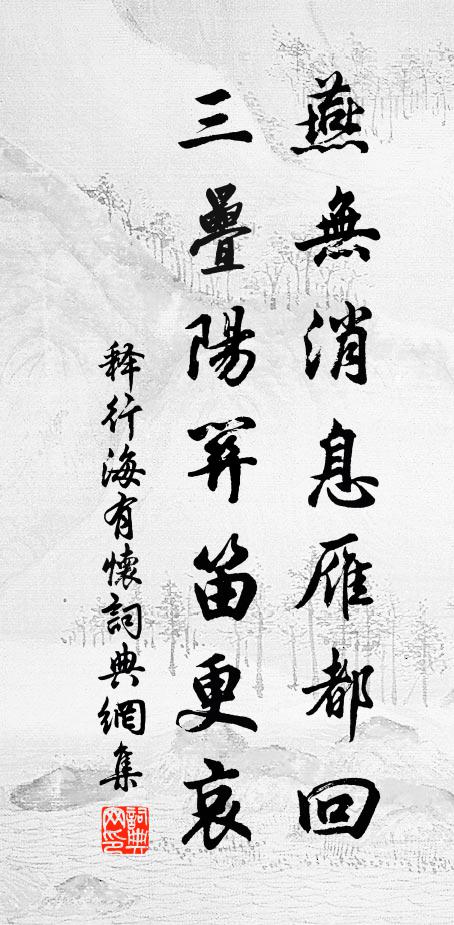 燕無消息雁都回
三疊陽關笛更哀
释行海有懷詞典網集
詞典网印